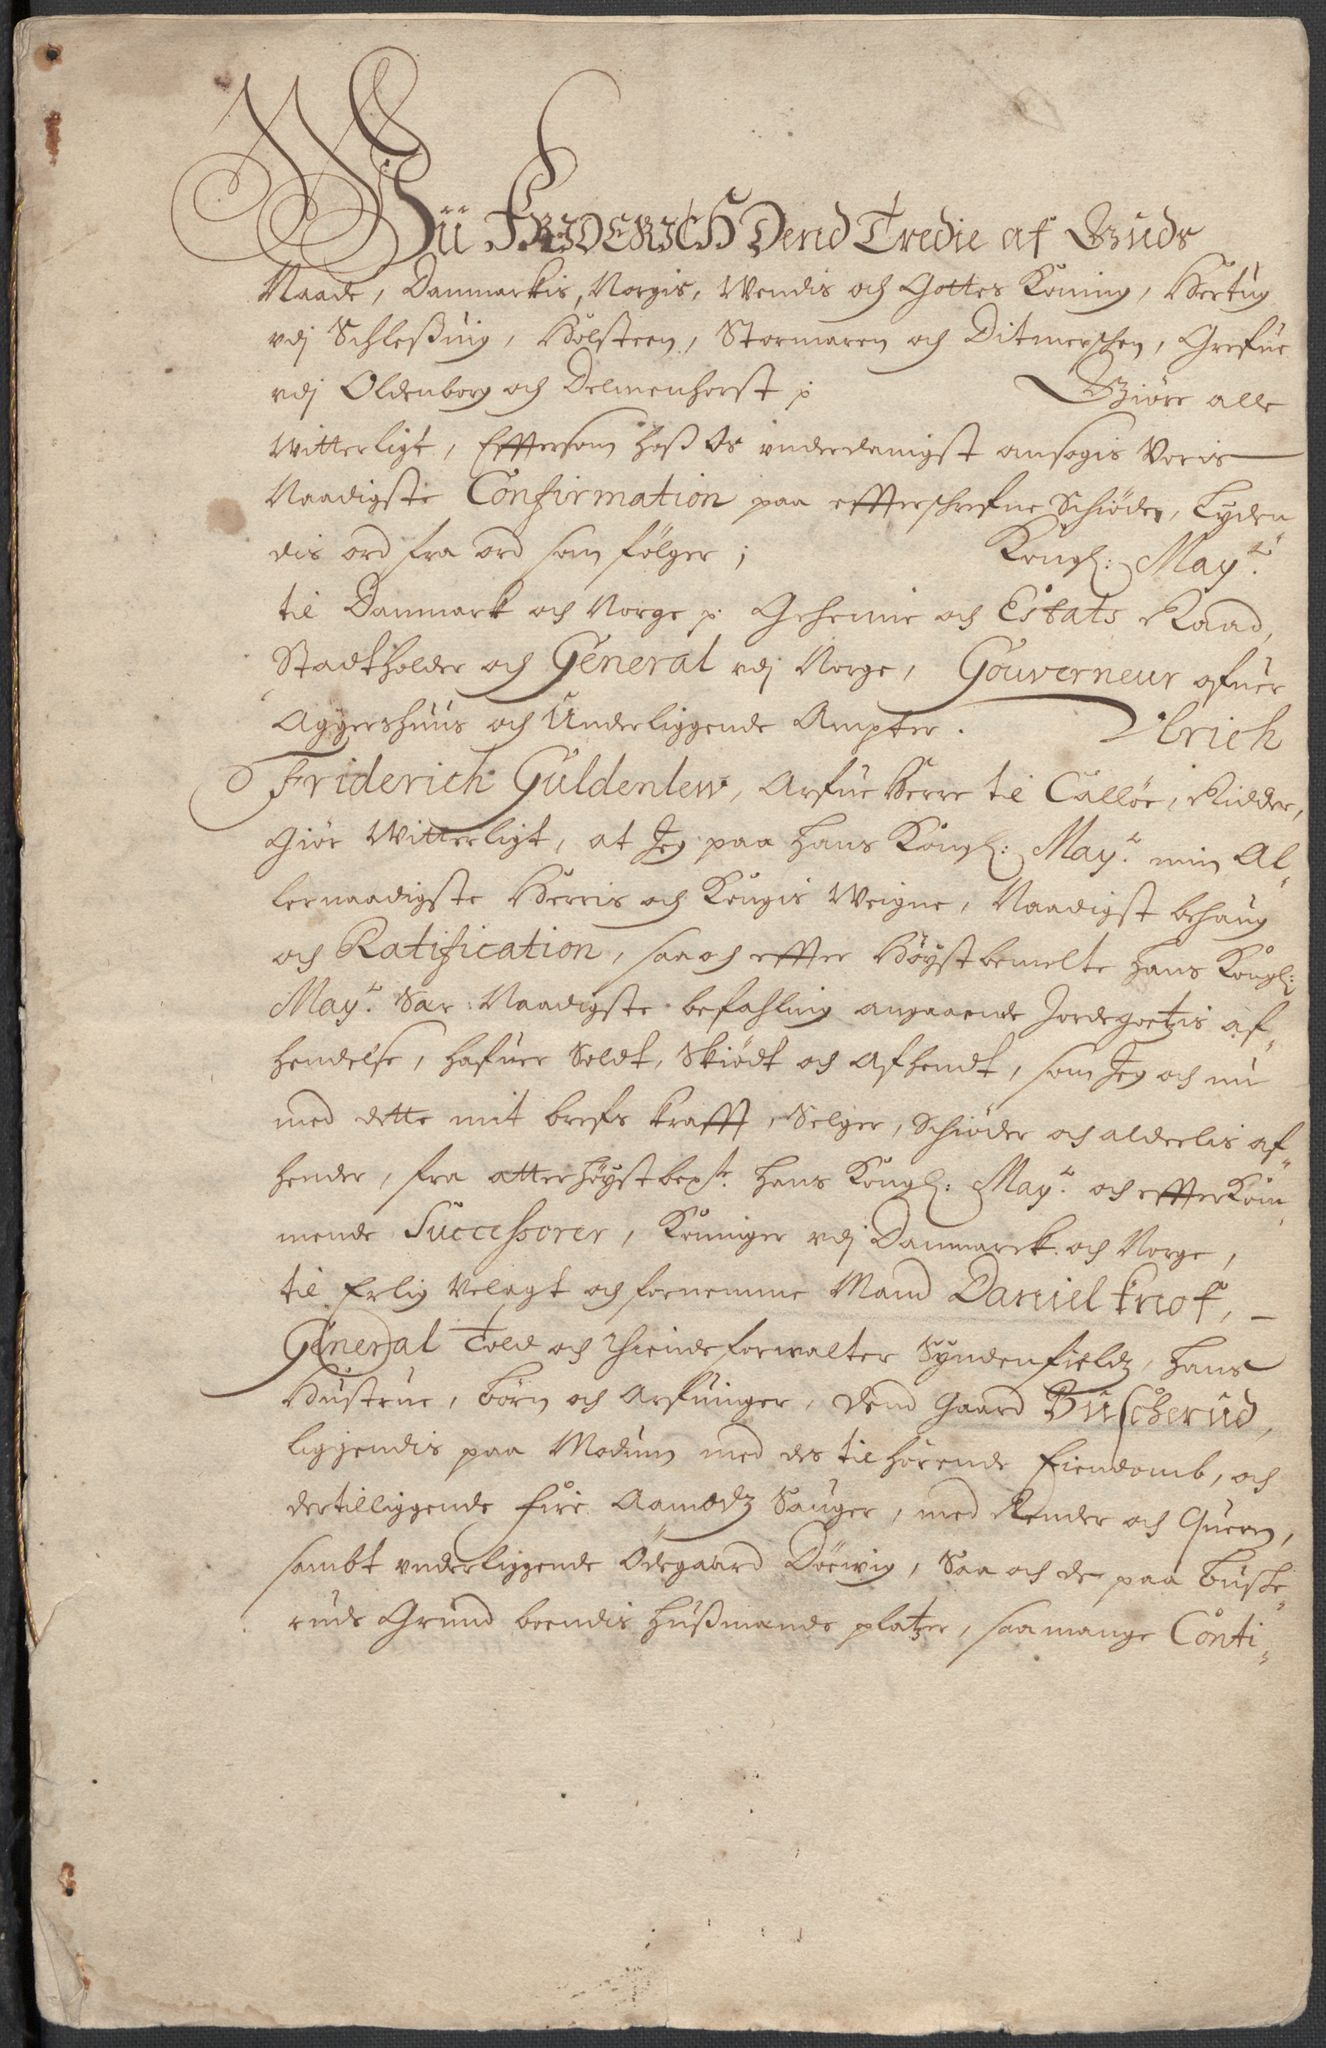 Wii FRIDERICH Dend Tredie af Guds
Naade, Danmarkis, Norgis, Wendis och Gottes Koning, Hertug
vdj Schleßuig, Holsteen, Stormaren och Ditmerschen, Grefue
vdj Oldenborg och Delmenhorst p: Giöre alle
Witterligt, Efftersom hoß Os vnderdanigst ansøgis Voris
Naadigste Confirmation paa effterschrefne Schiöde, Lyden
dis ord fra ord som fölger; Kongl: Mayᵗˢ
til Danmark och Norge p. Geheime och Estats Raad,
Stadtholder och General vdj Norge, Gouverneur ofuer
Aggershuus och Underliggende Ampter. Ulrich
Friderich Guldenlew, Arfue Herre til Callöe, Ridder,
Giör Witterligt, at Jeg paa Hans Kongl: Mayᵗˢ min Al„
lernaadigste Herris och Kongis Weigne, Naadigst behaug
och Ratification, saa och effter Höystbemelte Hans Kongl:
Mayᵗˢ Sær: Naadigste befahling angaaende Jordegoetzis af„
hendelse, hafuer Soldt, Skiödt och Afhendt, som Jeg och nu
med dette mit brefs krafft, Selger, Schiöder och alderlis af„
hender, fra atterhöystbeᵗᵉ Hans Kongl: Mayᵗˢ och effterkom„
mende Successorer, Konniger vdj Danmarck och Norge,
til Erlig Velagt och fornemme Mand Daniel Knof,
General Told och Thiende forwalter Syndenfieldz, Hans
Hustrue, börn och Arfuinger, dend Gaard Buscherud,
liggendis paa Modum med des tilhörende Eiendomb, och
dertilliggende fire Aamodtz Sauger, med Render och Quern,
sambt vnderliggende Ödegaard Döewig, Saa och de paa Buske„
ruds Grund boendis Hußmands platzer, saamange Conti„